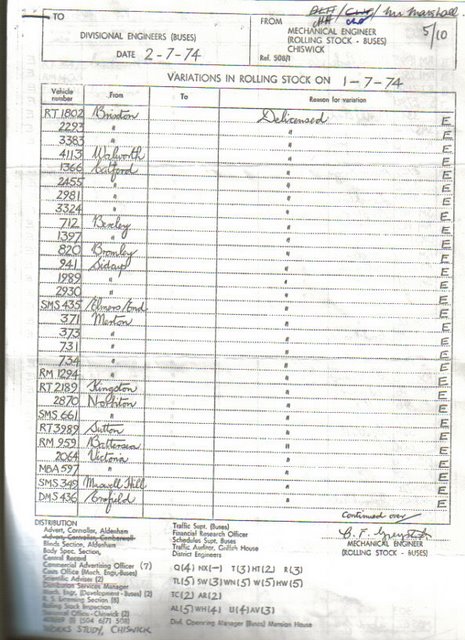 TO
DIVISIONAL ENGINEERS (BUSES)
DATE 2-7-74
FROM
Mr Marshall
MECHANICAL ENGINEER
(ROLLING STOCK - BUSES)
CHISWICK
Ref. 508/1
5/10
VARIATIONS IN ROLLING STOCK ON 1-7-74
Vehicle number From To Reason for variation
RT 1802 Brixton Delicensed E
2293 " " E
3383 " " E
4113 Walworth " E
1366 Catford " E
2455 " " E
2981 " " E
3324 " " E
712 Bexley " E
1397 " " E
820 Bromley " E
941 Sidcup " E
1989 " " E
2930 " " E
SMS 435 Elmers End " E
371 Merton " E
373 " " E
731 " " E
734 " " E
RM 1294 " " E
RT 2189 Kingston " E
2870 Norbiton " E
SMS 661 " " E
RT 3989 Sutton " E
RM 959 Battersea " E
2064 Victoria " E
MBA 597 " " E
SMS 349 Muswell Hill " E
DMS 436 Enfield " E
Continued over
MECHANICAL ENGINEER
(ROLLING STOCK - BUSES)
DISTRIBUTION
Advert. Controller, Aldenham
Advert. Controller, Camberwell
Block Section, Aldenham
Body Spec. Section,
Central Record
Commercial Advertising Officer (7)
Costs Office (Mech. Engr.-Buses)
Scientific Adviser (2)
Distribution Services Manager
Mech. Engr. (Development - Buses) (2)
R. S. Licensing Section (8)
Rolling Stock Inspection
Divisional Office - Chiswick (2)
WORKS STUDY, CHISWICK
Traffic Supt. (Buses)
Financial Research Officer
Schedules Supt. Buses
Traffic Auditor, Griffith House
District Engineers
Q(4) HX(-1) T(3) HT(2) R(3)
TL(5) SW(3) WN(5) W(5) HW(5)
TC(2) AR(2)
AL(5) WH(4) U(4) AV(3)
Divl. Operating Manager (Buses) Mansion House